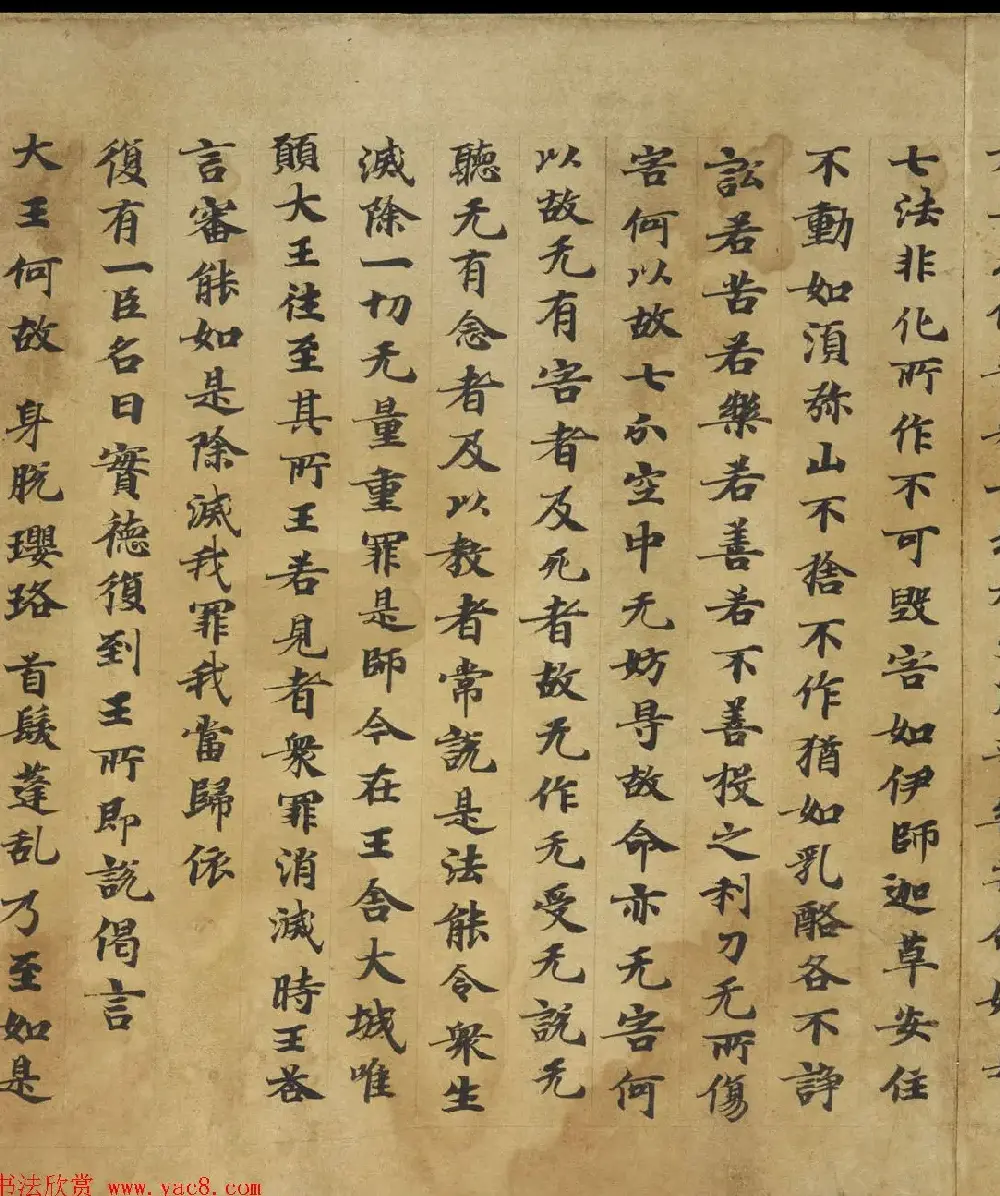 七法非化所作不可毀害如伊師迦草安住
不動如湏弥山不捨不作猶如乳酪各不諍
訟若苦若樂若善若不善投之利刀无所傷
害何以故七分空中无妨㝵故命亦无害何
以故无有害者及死者故无作无受无說无
聽无有念者及以教者常說是法能令衆生
滅除一切无量重罪是師今在王舍大城唯
願大王往至其所王若見者衆罪消滅時王荅
言審能如是除滅我罪我當歸依
復有一臣名曰實德復到王所即說偈言
大王何故 身脫瓔珞 首髮蓬乱 乃至如是
书法欣赏 www.yac8.com